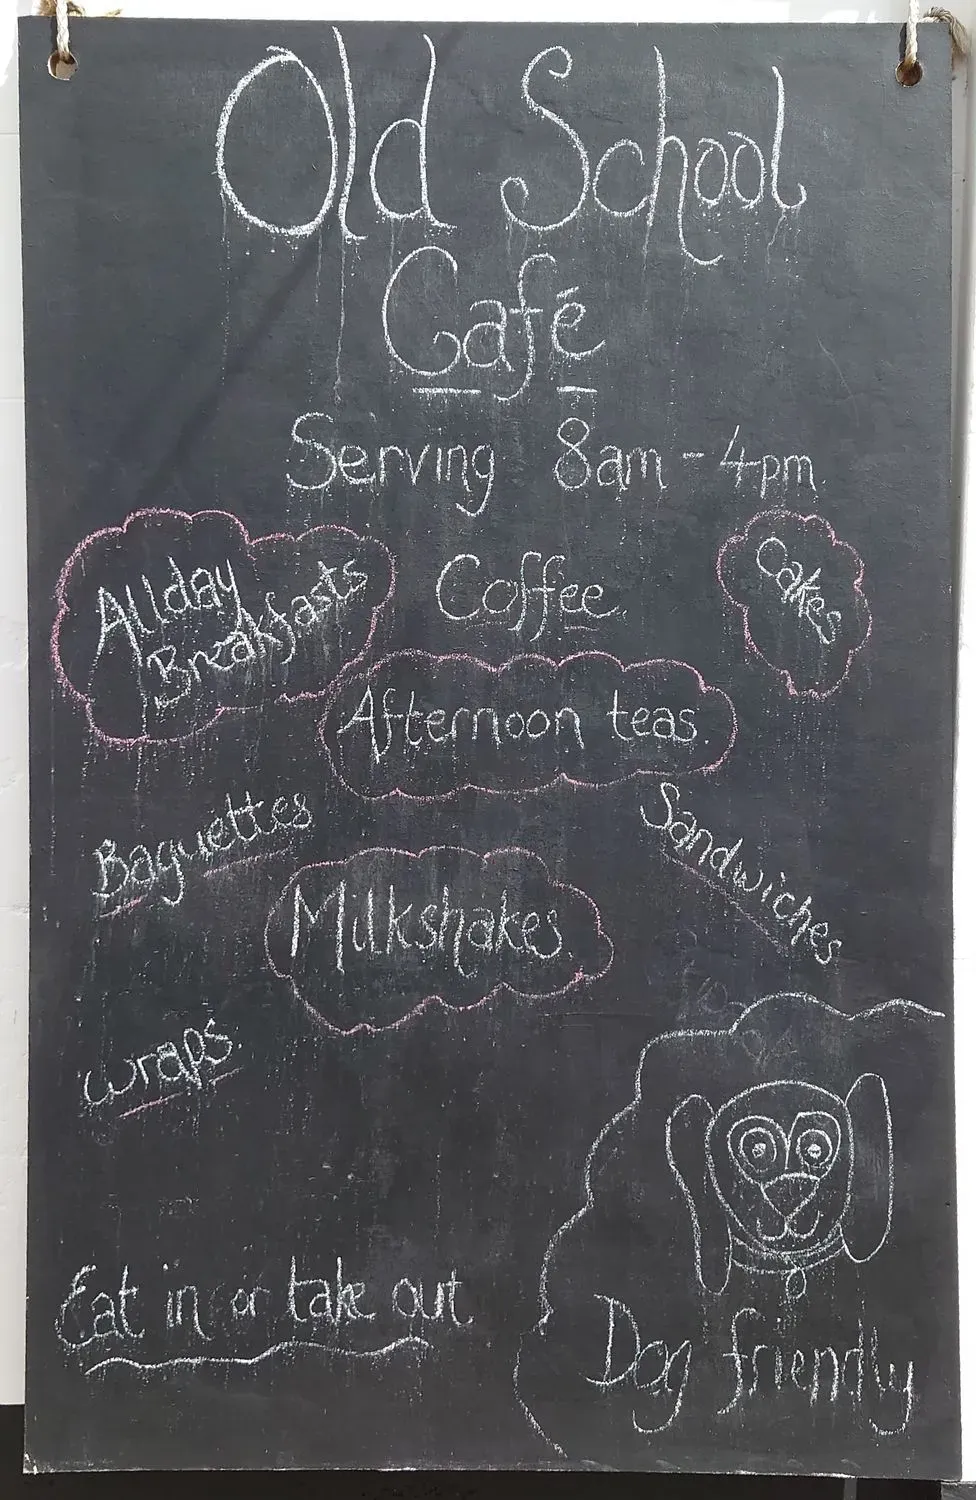 Old School
Café
Serving 8am - 4pm
Allday
Breakfasts
Coffee.
Cakes
Afternoon teas.
Baguettes
Sandwiches
Milkshakes.
wraps.
Eat in or take out
Dog friendly